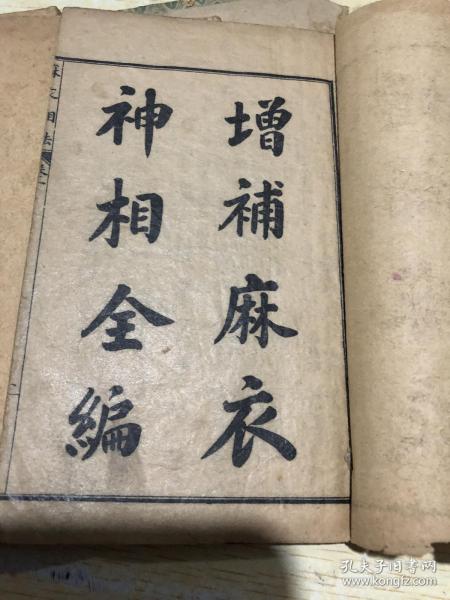 增補麻衣
神相全編
孔夫子旧书网
www.kongfz.com